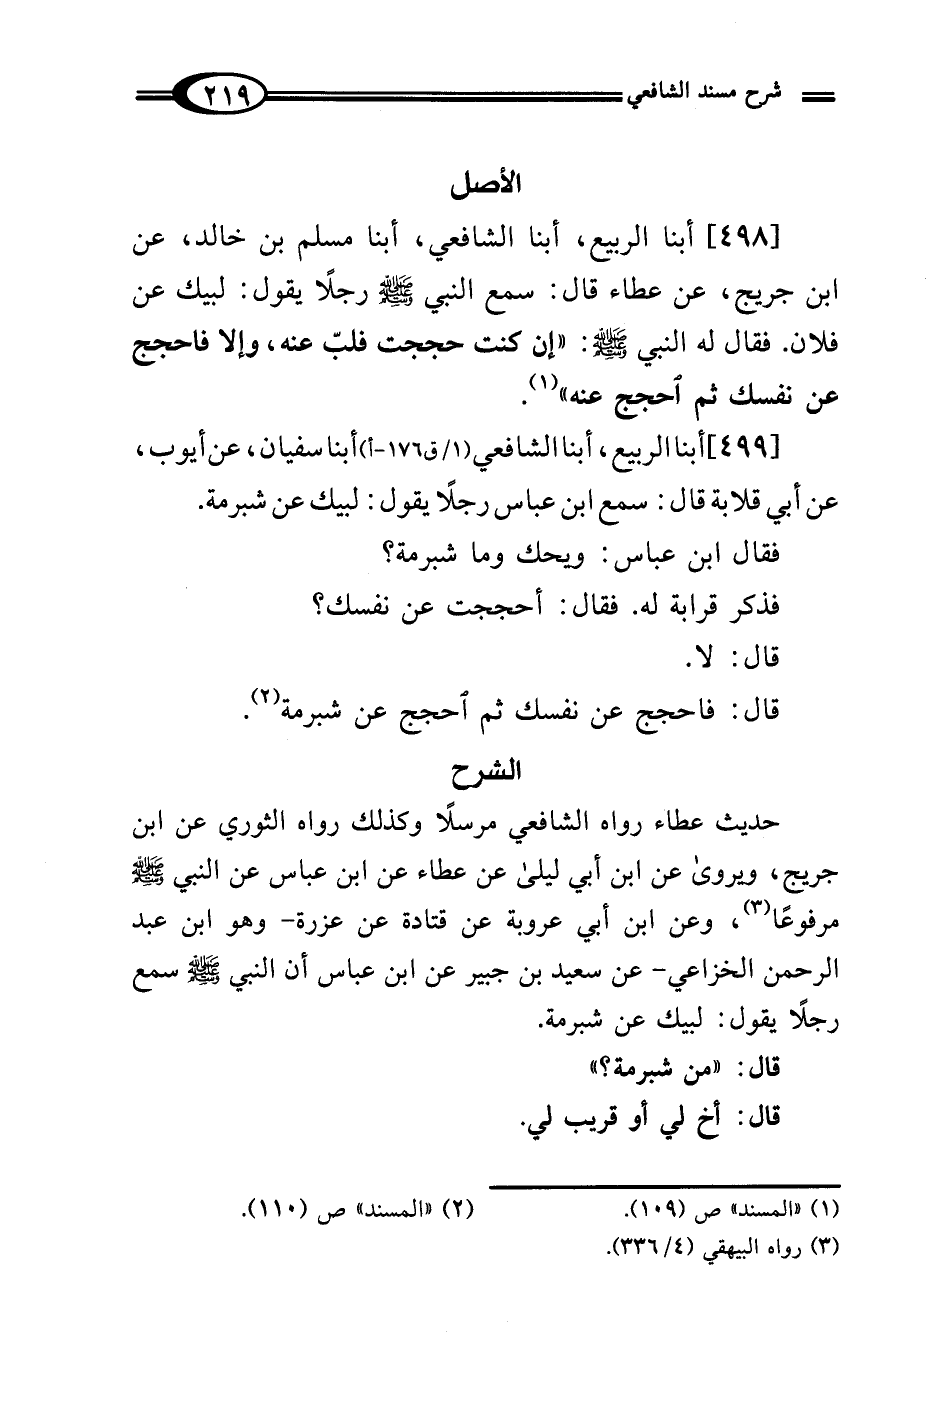 شرح مسند الشافعي ٢١٩
الأصل
[٤٩٨] أبنا الربيع، أبنا الشافعي، أبنا مسلم بن خالد، عن
ابن جريج، عن عطاء قال: سمع النبي ﷺ رجلًا يقول: لبيك عن
فلان. فقال له النبي ﷺ: «إن كنت حججت فلبّ عنه، وإلا فاحجج
عن نفسك ثم ٱحجج عنه»(١).
[٤٩٩] أبنا الربيع، أبنا الشافعي (١/ ق١٧٦-أ) أبنا سفيان، عن أيوب،
عن أبي قلابة قال: سمع ابن عباس رجلًا يقول: لبيك عن شبرمة.
فقال ابن عباس: ويحك وما شبرمة؟
فذكر قرابة له. فقال: أحججت عن نفسك؟
قال: لا.
قال: فاحجج عن نفسك ثم ٱحجج عن شبرمة(٢).
الشرح
حديث عطاء رواه الشافعي مرسلًا وكذلك رواه الثوري عن ابن
جريج، ويروىٰ عن ابن أبي ليلىٰ عن عطاء عن ابن عباس عن النبي ﷺ
مرفوعًا(٣)، وعن ابن أبي عروبة عن قتادة عن عزرة- وهو ابن عبد
الرحمن الخزاعي- عن سعيد بن جبير عن ابن عباس أن النبي ﷺ سمع
رجلًا يقول: لبيك عن شبرمة.
قال: «من شبرمة؟»
قال: أخ لي أو قريب لي.
(١) «المسند» ص (١٠٩). (٢) «المسند» ص (١١٠).
(٣) رواه البيهقي (٤/ ٣٣٦).